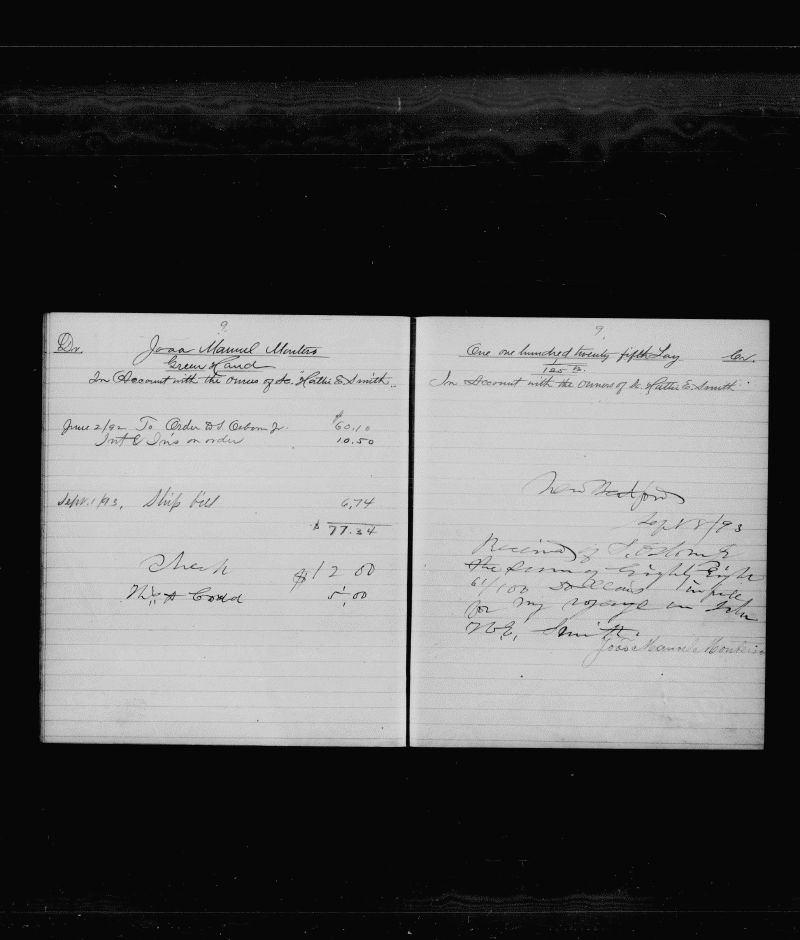 9
Dr. Joao Manuel Montero
Green Hand
In Account with the Owners of Sc. "Hattie E Smith"
June 2/92 To Order D S Osborn Jr. $60.10
Int & Ins on order 10.50
Sept. 1/93, Ship bill 6.74
$ 77.34
Check $12 00
5.00
9
One one hundred twenty fifth Lay Cr.
125th
In Account with the Owners of Sc. Hattie E. Smith
New Bedford
Sept 8/93
Received of
the sum of Eighty Eight
61/100 Dollars in full
for my voyage in Schr
H.E. Smith.
Joao Manuel Monteiro